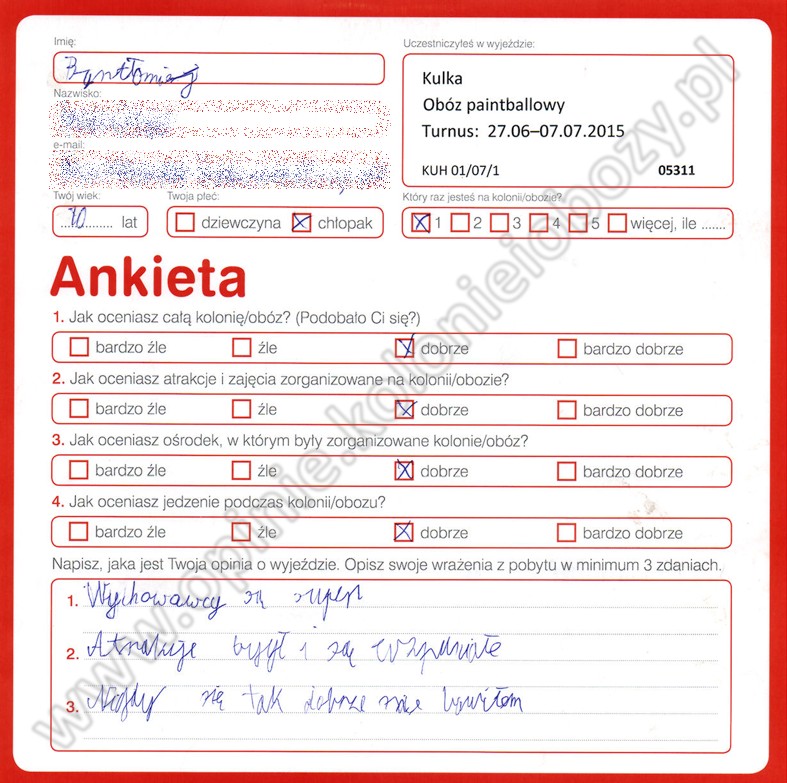 Imię:
Bartłomiej
Nazwisko:
e-mail:
Twój wiek:
10 lat
Twoja płeć:
dziewczyna chłopak
Uczestniczyłeś w wyjeździe:
Kulka
Obóz paintballowy
Turnus: 27.06–07.07.2015
KUH 01/07/1 05311
Który raz jesteś na kolonii/obozie?
1 2 3 4 5 więcej, ile .......
Ankieta
1. Jak oceniasz całą kolonię/obóz? (Podobało Ci się?)
bardzo źle źle dobrze bardzo dobrze
2. Jak oceniasz atrakcje i zajęcia zorganizowane na kolonii/obozie?
bardzo źle źle dobrze bardzo dobrze
3. Jak oceniasz ośrodek, w którym były zorganizowane kolonie/obóz?
bardzo źle źle dobrze bardzo dobrze
4. Jak oceniasz jedzenie podczas kolonii/obozu?
bardzo źle źle dobrze bardzo dobrze
Napisz, jaka jest Twoja opinia o wyjeździe. Opisz swoje wrażenia z pobytu w minimum 3 zdaniach.
1. Wychowawcy są super
2. i są
3. Nigdy się tak dobrze nie bawiłem
www.opinie.kolonieiobozy.pl